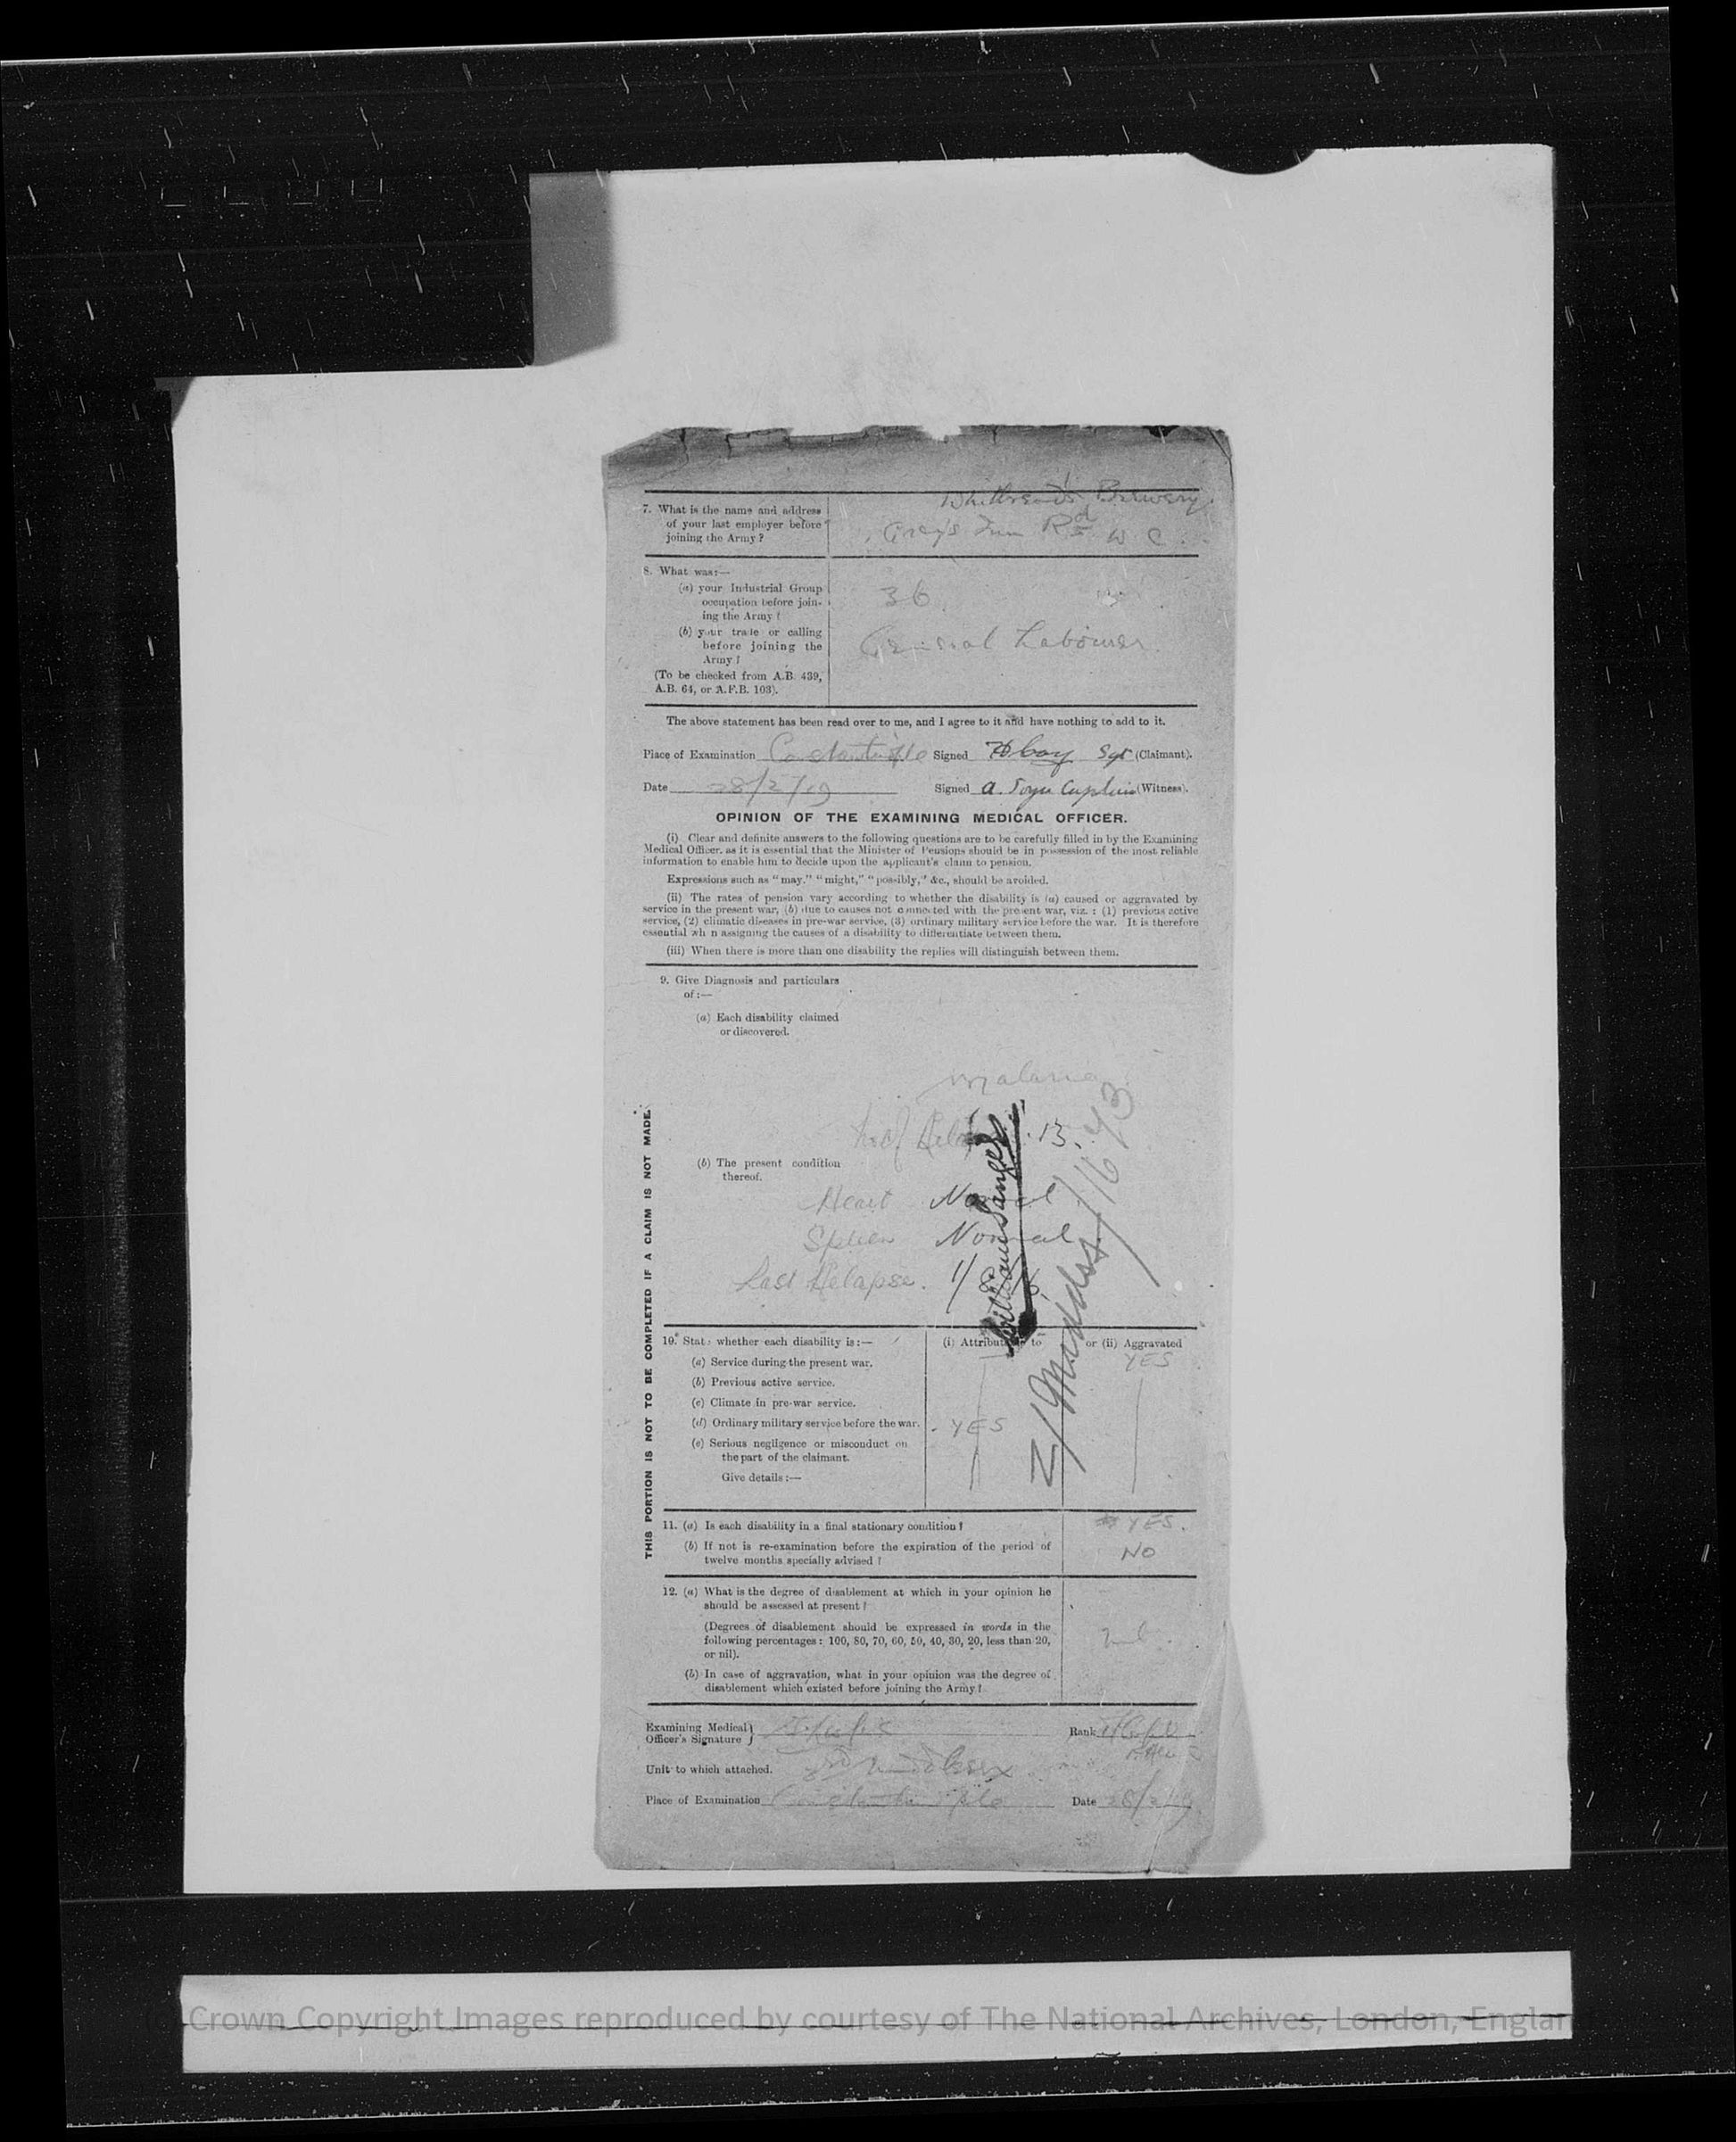 Whitbreads Brewery.
7. What is the name and address
of your last employer before
joining the Army?
Grays Inn Rd W C.
8. What was:—
(a) your Industrial Group
occupation before join-
ing the Army?
36
(b) your trade or calling
before joining the
Army?
General Labourer.
(To be checked from A.B. 439,
A.B. 64, or A.F.B. 103).
The above statement has been read over to me, and I agree to it and have nothing to add to it.
Place of Examination Constantinople Signed Sgt (Claimant).
Date 28/2/19 Signed A. (Witness).
OPINION OF THE EXAMINING MEDICAL OFFICER.
(i) Clear and definite answers to the following questions are to be carefully filled in by the Examining
Medical Officer, as it is essential that the Minister of Pensions should be in possession of the most reliable
information to enable him to decide upon the applicant's claim to pension.
Expressions such as "may," "might," "possibly," &c., should be avoided.
(ii) The rates of pension vary according to whether the disability is (a) caused or aggravated by
service in the present war, (b) due to causes not connected with the present war, viz.: (1) previous active
service, (2) climatic diseases in pre-war service, (3) ordinary military service before the war. It is therefore
essential wh n assigning the causes of a disability to differentiate between them.
(iii) When there is more than one disability the replies will distinguish between them.
9. Give Diagnosis and particulars
of:—
(a) Each disability claimed
or discovered.
Malaria
13.
(b) The present condition
thereof.
Heart Normal
Spleen Normal
Last Relapse. 1/8/
William Sanger
2/Middlsx/11643
THIS PORTION IS NOT TO BE COMPLETED IF A CLAIM IS NOT MADE.
10. State whether each disability is:— (i) Attributable to or (ii) Aggravated
(a) Service during the present war. YES
(b) Previous active service.
(c) Climate in pre-war service.
(d) Ordinary military service before the war. YES
(e) Serious negligence or misconduct on
the part of the claimant.
Give details:—
11. (a) Is each disability in a final stationary condition? YES.
(b) If not is re-examination before the expiration of the period of
twelve months specially advised? NO
12. (a) What is the degree of disablement at which in your opinion he
should be assessed at present?
(Degrees of disablement should be expressed in words in the
following percentages: 100, 80, 70, 60, 50, 40, 30, 20, less than 20,
or nil). Nil.
(b) In case of aggravation, what in your opinion was the degree of
disablement which existed before joining the Army?
Examining Medical
Officer's Signature Rank
Unit to which attached. Middlesex
Place of Examination Constantinople Date 28/2/19
Crown Copyright Images reproduced by courtesy of The National Archives, London, Englan